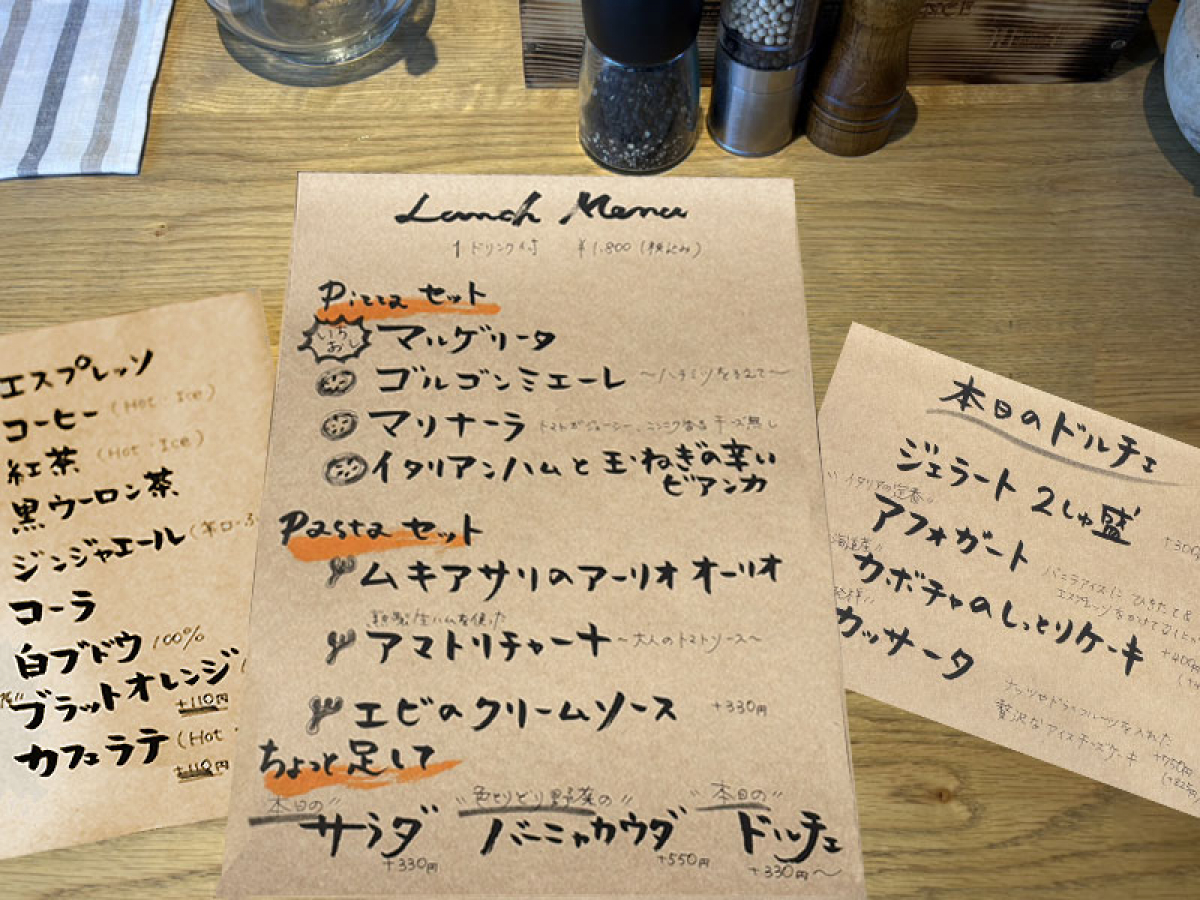 Lunch Menu
1ドリンク付 ¥1,800(税込み)
Pizza セット
いちおし マルゲリータ
ゴルゴンミエーレ 〜ハチミツを
マリナーラ チーズ無し
イタリアンハムと玉ねぎの辛い
ビアンカ
Pasta セット
ムキアサリのアーリオオーリオ
生ハムを使った
アマトリチャーナ 〜大人のトマトソース〜
エビのクリームソース +330円
ちょっと足して
本日の"
サラダ
+330円
"色とりどり野菜の"
バーニャカウダ
+550円
"本日の"
ドルチェ
+330円〜
エスプレッソ
コーヒー (Hot・Ice)
紅茶 (Hot・Ice)
黒ウーロン茶
ジンジャエール
コーラ
白ブドウ 100%
ブラットオレンジ
+110円
カフェラテ (Hot・
+110円
本日のドルチェ
ジェラート 2しゅ盛
"イタリアの定番"
アフォガート
バニラアイスに ひきたて
エスプレッソをかけて
カボチャのしっとりケーキ
カッサータ
ナッツやドライフルーツを入れた
贅沢なアイスチーズケーキ